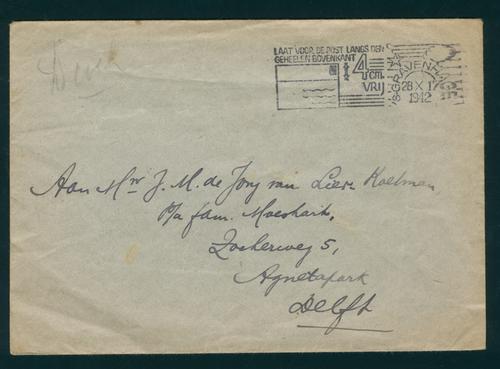 LAAT VOOR DE POST LANGS DEN
GEHEELEN BOVENKANT
4 cm.
VRIJ
'S-GRAVENHAGE
28 X 17
1942
Aan Mr J. M. de Jong van Lier-Koelman
p/a fam. Moeshart,
Zocherweg 5,
Agnetapark
Delft